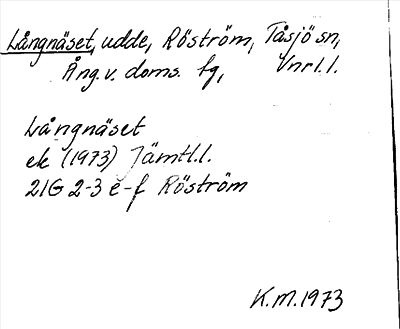 Långnäset, udde, Röström, Tåsjö sn,
Ång. v. doms. fg, Vnrl.l.
Långnäset
ek (1973) Jämtl.l.
21G 2-3 e-f Röström
K.M. 1973